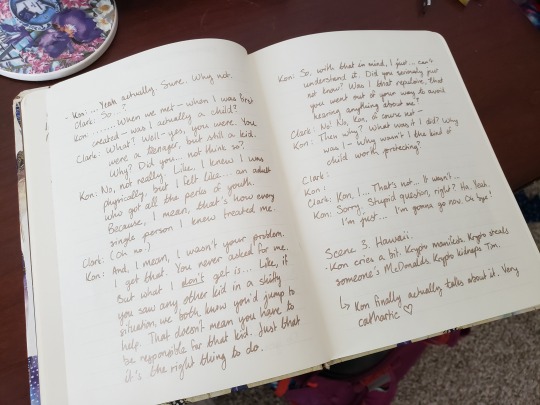 - Kon: ... Yeah actually. Sure. Why not.
Clark: So...?
Kon: ....... When we met - when I was first
created - was I actually a child?
Clark: What? Well - yes, you were. You
were a teenager, but still a kid.
Why? Did you... not think so?
Kon: No, not really. Like, I knew I was
physically, but I felt like... an adult
who got all the perks of youth.
Because, I mean, that's how every
single person I knew treated me.
Clark: (Oh no.)
Kon: And, I mean, I wasn't your problem.
I get that. You never asked for me.
But what I don't get is... Like, if
you saw any other kid in a shitty
situation, we both know you'd jump to
help. That doesn't mean you have to
be responsible for that kid. Just that
it's the right thing to do.
Kon: So, with that in mind, I just... can't
understand it. Did you seriously just
not know? Was I that repulsive, that
you went out of your way to avoid
hearing anything about me?
Clark: No! No, Kon, of course not -
Kon: Then why? What was it I did? Why
was I - Why wasn't I the kind of
child worth protecting?
Clark:
Kon:
Clark: Kon, I... That's not... It wasn't...
Kon: Sorry. Stupid question, right? Ha. Yeah.
I'm just... I'm gonna go now. Ok bye!
Scene 3. Hawaii.
- Kon cries a bit. Krypto manifests. Krypto steals
someone's McDonalds. Krypto kidnaps Tim.
↳ Kon finally actually talks about it. Very
cathartic ♡